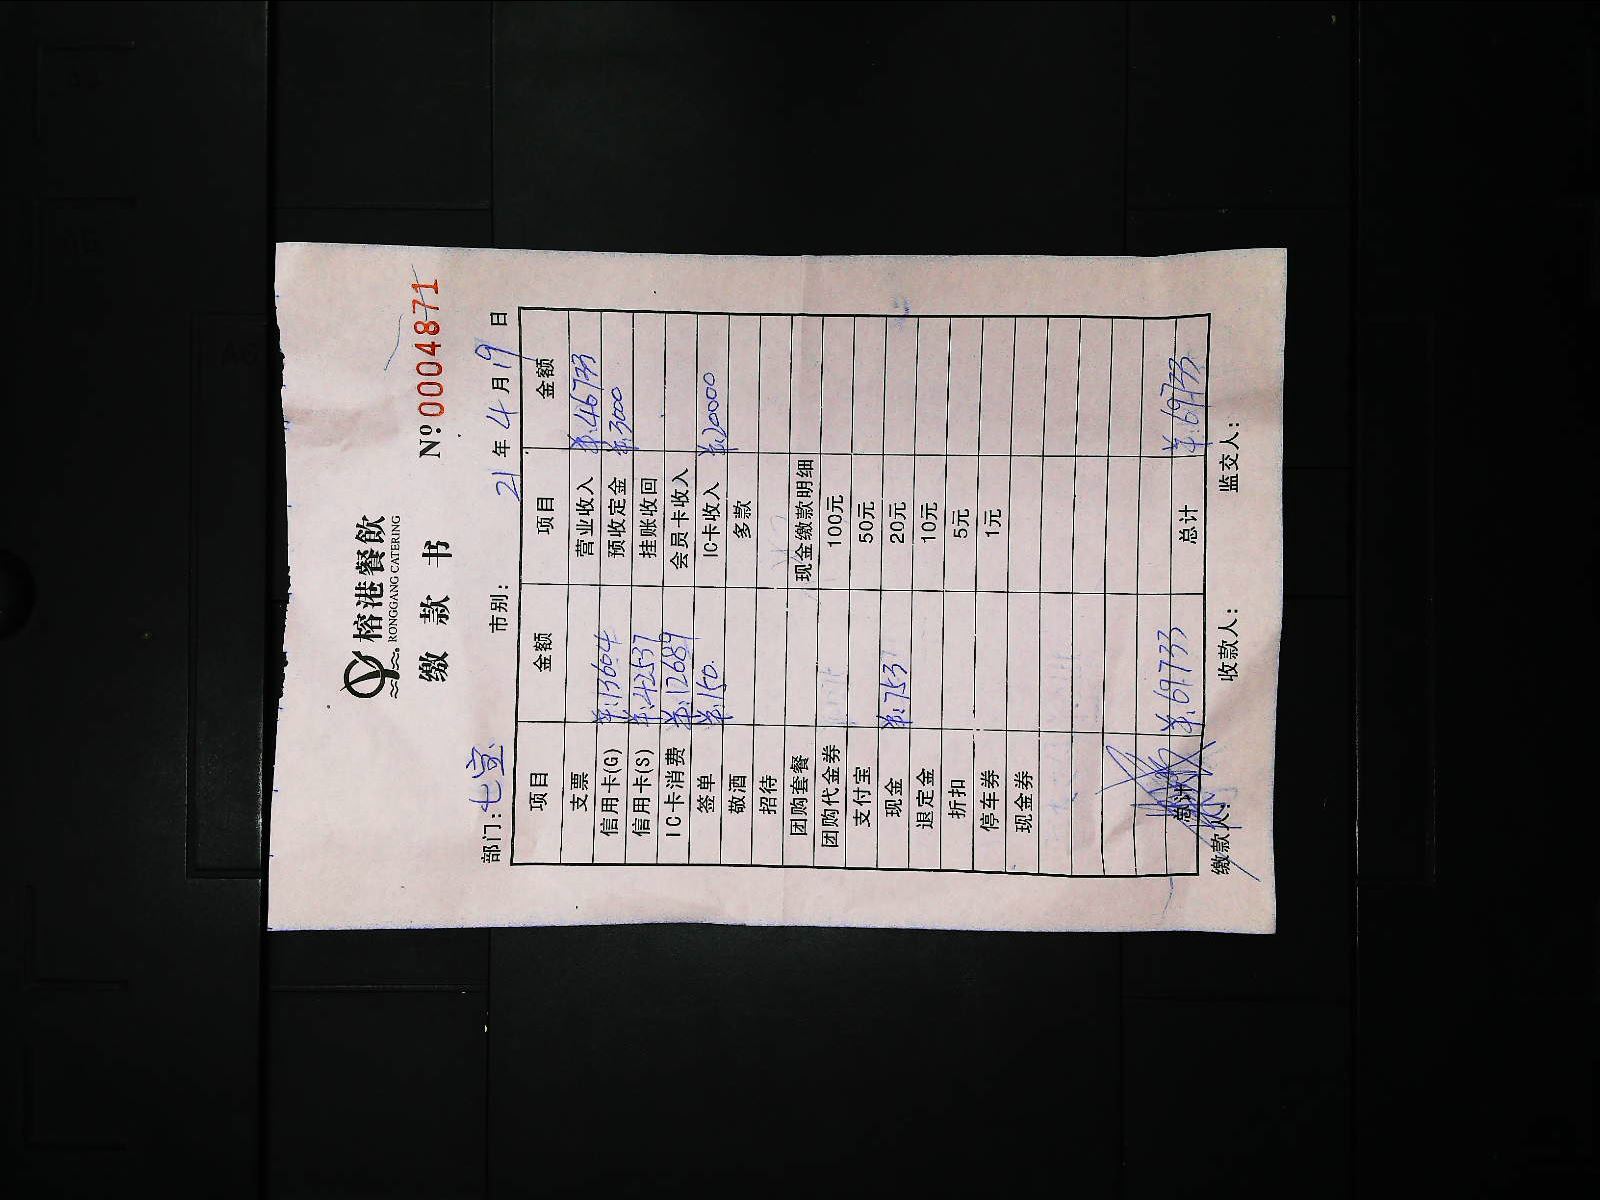 榕港餐飲
RONGGANG CATERING
缴 款 书 №:0004871
部门:七宝 市别: 21 年 4 月 19 日
项目 金额 项目 金额
支票 营业收入 ¥:46733
信用卡(G) ¥:13604 预收定金 ¥:3000
信用卡(S) ¥:42537 挂账收回
IC卡消费 ¥:12689 会员卡收入
签单 ¥:150. IC卡收入 ¥:20000
敬酒 多款
招待
团购套餐 现金缴款明细
团购代金券 100元
支付宝 50元
现金 ¥:753 20元
退定金 10元
折扣 5元
停车券 1元
现金券
总计 ¥:69733 总计 ¥:69733
缴款人: 收款人: 监交人: